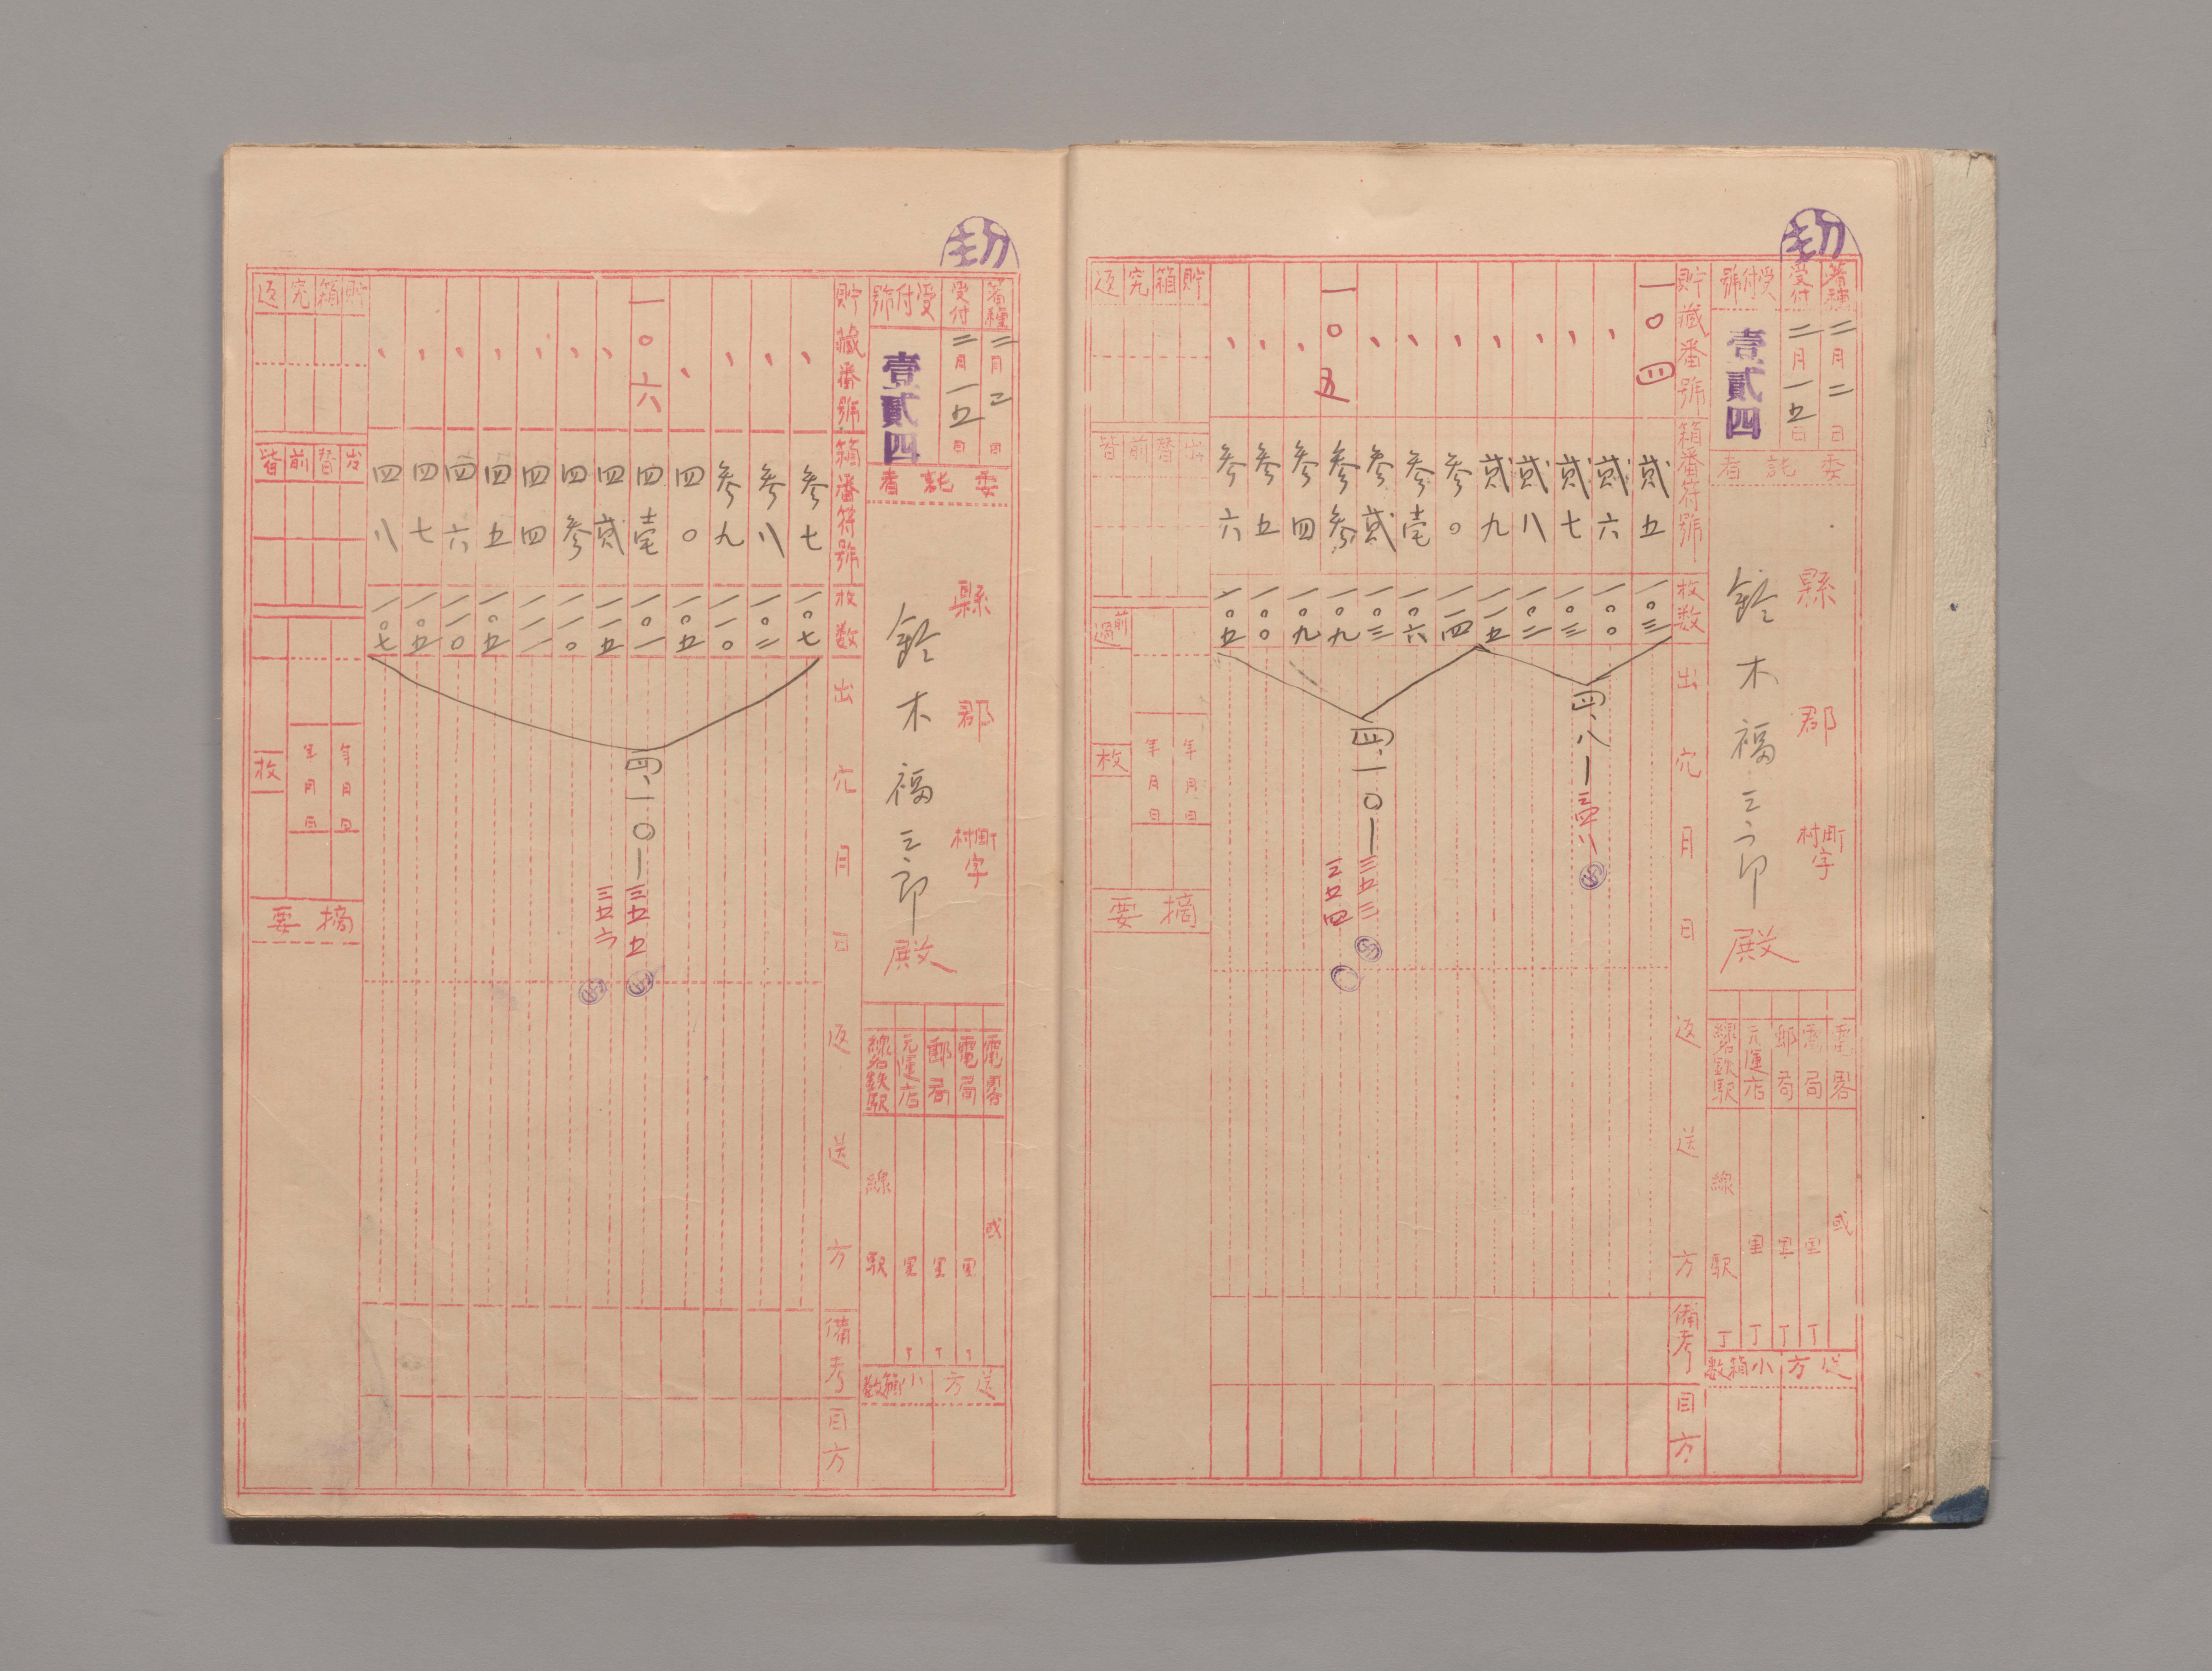 着種
二月二日
受付
二月一五日
受付號
壹貳四
委託者
縣
郡
町村字
鈴木福三郎
殿
電畧
或
電局
里
丁
郵局
里
丁
元運店
里
丁
線名鉄駅
線
駅
丁
送方
小箱数
貯蔵番號
箱番符號
枚数
出穴月日
返送方
備考
目方
一〇四
貳五
一〇三
、
貳六
一〇〇
、
貳七
一〇三
、
貳八
一〇二
、
貳九
一一五
、
参〇
一一四
、
参壱
一〇六
、
参貳
一〇三
一〇五
参参
一〇九
、
参四
一〇九
、
参五
一〇〇
、
参六
一〇五
四、八ー三四八
四、一〇ー三五三
三五四
貯箱究返
出替前皆
前渦
年月日
年月日
枚
摘要
着種
二月二日
受付
二月一五日
受付號
壹貳四
委託者
縣
郡
町村字
鈴木福三郎
殿
電畧
或
電局
里
丁
郵局
里
丁
元運店
里
丁
線名鉄駅
線
駅
送方
小箱数
貯蔵番號
箱番符號
枚数
出穴月日
返送方
備考
目方
、
参七
一〇七
、
参八
一〇二
、
参九
一一〇
、
四〇
一〇五
一〇六
四壱
一〇一
、
四貳
一一五
、
四参
一一〇
、
四四
一一一
、
四五
一〇五
、
四六
一一〇
、
四七
一〇五
、
四八
一〇七
四、一〇ー三五五
三五六
貯箱究返
出替前皆
年月日
年月日
枚
摘要